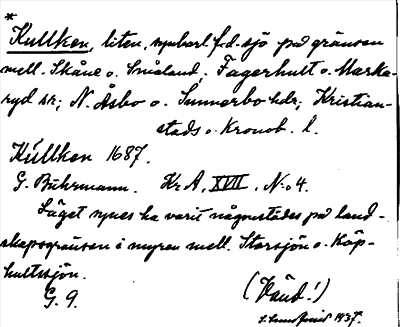 *
Kullken, liten, synbarl. f.d. sjö på gränsen
mell. Skåne o. Småland, Fagerhult o. Marka-
ryd sr; N. Åsbo o. Sunnerbo hdr; Kristian-
stads o. Kronob. l.
Kullken 1687.
G. Buhrmann. Kr A, XVII, N:o 4.
Läget synes ha varit någonstädes på land-
skapsgränsen i myren mell. Storsjön o. Käp-
hultssjön.
G. 9.
(Vänd!)
1937.